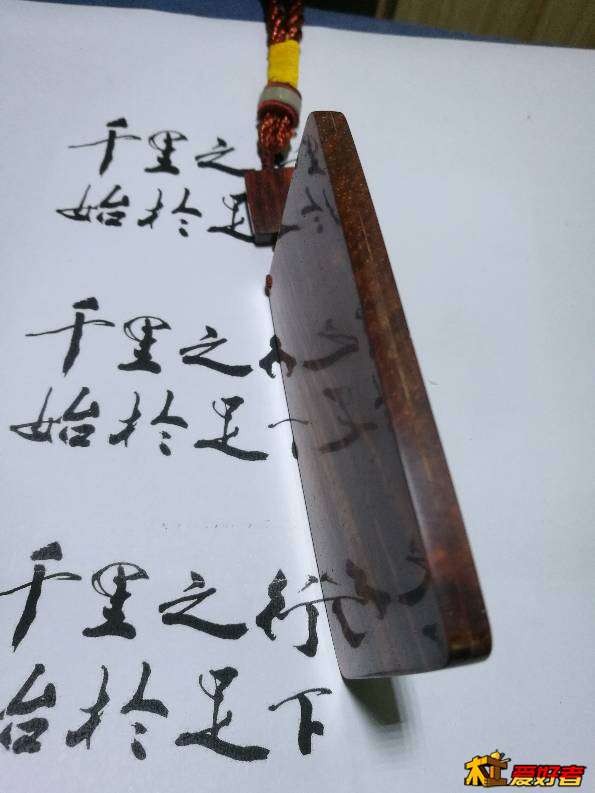 千里之
始於足
千里之行
始於足下
千里之行
始於足下
木工爱好者